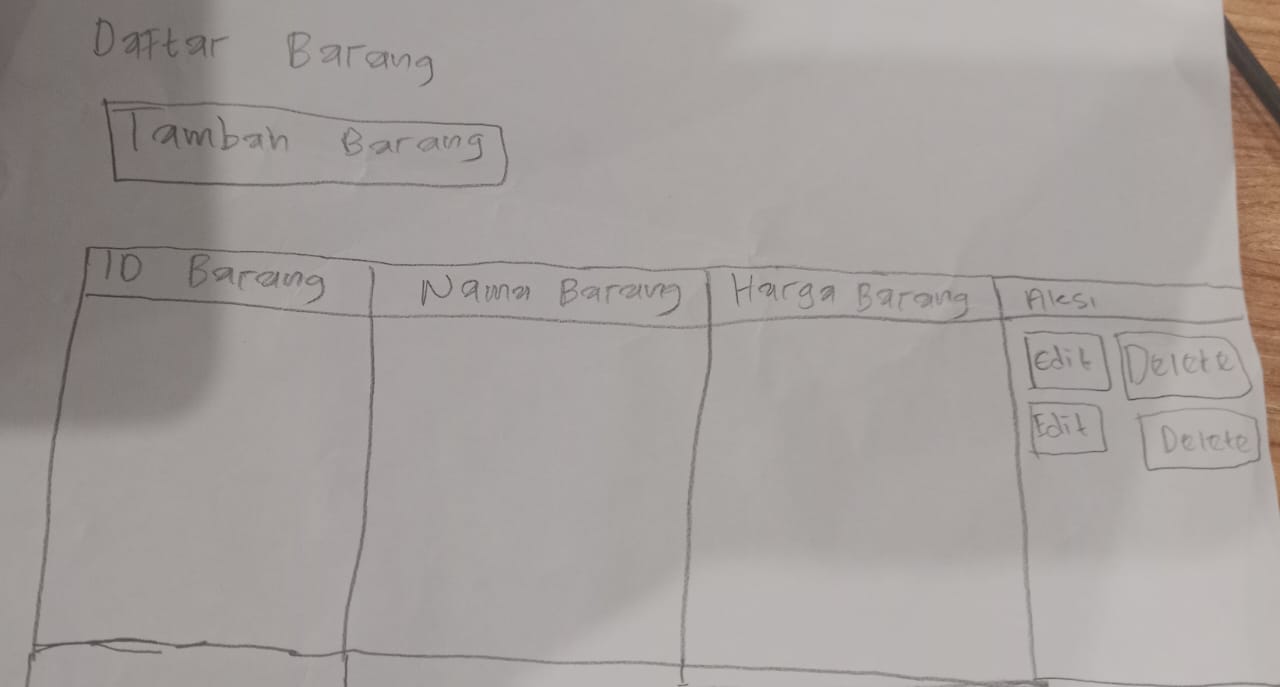 Daftar Barang
Tambah Barang
ID Barang Nama Barang Harga Barang Aksi
Edit Delete
Edit Delete